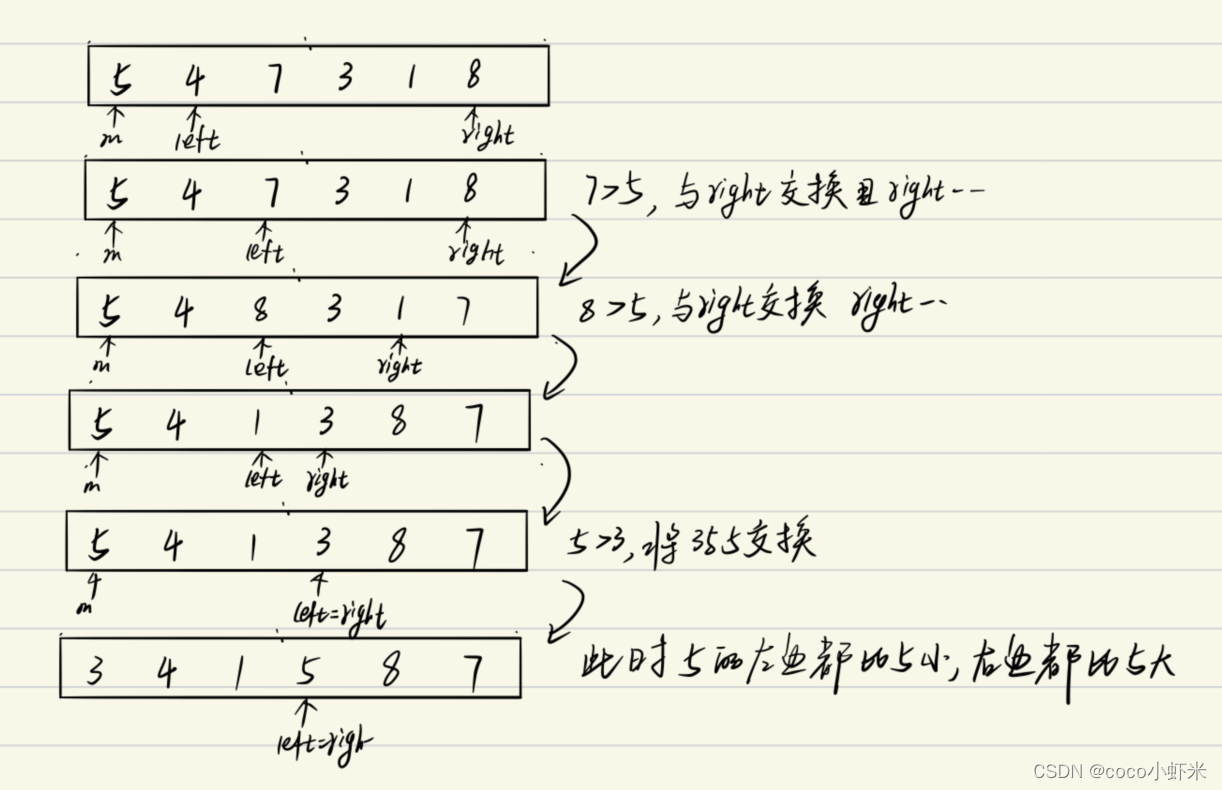 5 4 7 3 1 8
m left right
5 4 7 3 1 8 7>5, 与right交换且right--
m left right
5 4 8 3 1 7 8>5, 与right交换 right--
m left right
5 4 1 3 8 7
m left right
5 4 1 3 8 7 5>3, 将3与5交换
m left=right
3 4 1 5 8 7 此时5的左边都比5小, 右边都比5大
left=righ
CSDN @coco小虾米